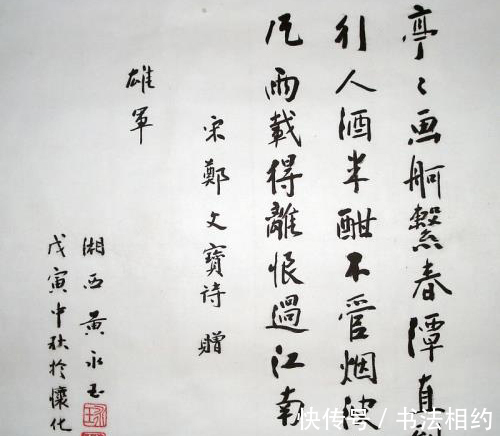 亭〻画舸繫春潭直到
行人酒半酣不管烟波
风雨載得離恨過江南
宋鄭文寶诗贈
雄軍
湘西黄永玉
戊寅中秋於懷化
快传号 / 书法相约